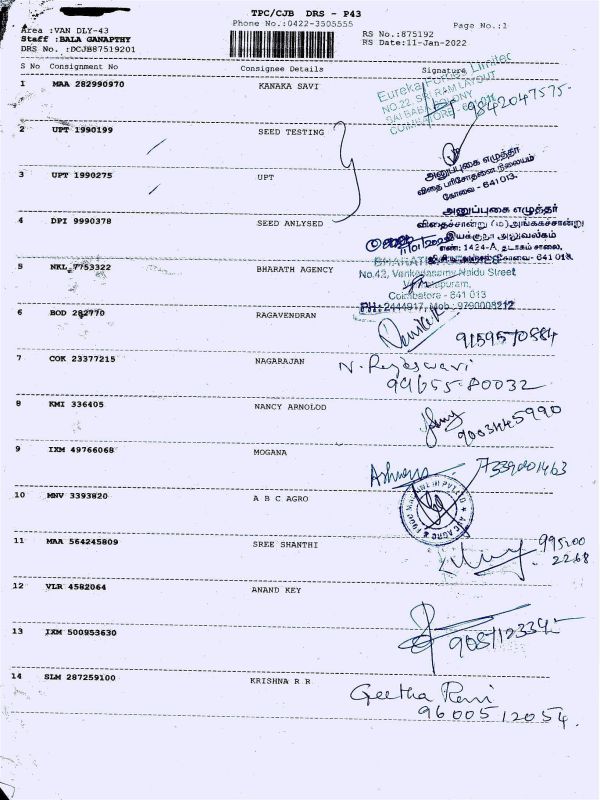 TPC/CJB DRS - P43
Phone No.:0422-3505555
Page No.:1
Area :VAN DLY-43
Staff :BALA GANAPTHY
DRS No. :DCJB87519201
RS No.:875192
RS Date:11-Jan-2022
S No Consignment No Consignee Details Signature
1 MAA 282990970 KANAKA SAVI
Eureka Forbes Limited
NO.22, SRI RAM LAYOUT
SAI BABA COLONY
COIMBATORE - 641 011
9842047575-
2 UPT 1990199 SEED TESTING
அனுப்புகை எழுத்தர்
விதை பரிசோதனை நிலையம்
கோவை - 641 013.
3 UPT 1990275 UPT
4 DPI 9990378 SEED ANLYSED
அனுப்புகை எழுத்தர்
விதைச்சான்று (ம) அங்ககச்சான்று
இயக்குநர் அலுவலகம்
எண்: 1424-A, தடாகம் சாலை,
கோவை- 641 013.
5 NKL 7753322 BHARATH AGENCY
No.42, Venkadasamy Naidu Street
Coimbatore - 641 013
PH: 2444917, Mob.: 9790008212
6 BOD 282770 RAGAVENDRAN
9159570884
7 COK 23377215 NAGARAJAN
N. Rajeswari
99655-80032
8 KMI 336405 NANCY ARNOLOD
9003445990
9 IXM 49766068 MOGANA
7339001463
10 MNV 3393820 A B C AGRO
11 MAA 564245809 SREE SHANTHI
99500
2268
12 VLR 4582064 ANAND KEY
13 IXM 500953630
14 SLM 287259100 KRISHNA R R
Geetha Rani
9600512054.